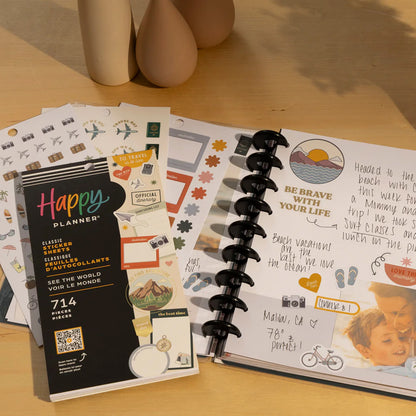 Happy
PLANNER
CLASSIC
STICKER
SHEETS
CLASSIQUE
FEUILLES
D'AUTOCOLLANTS
SEE THE WORLD
VOIR LE MONDE
714
PIECES
PIÈCES
TO TRAVEL
OFFICIAL
adventure
the best time
BE BRAVE
WITH
YOUR LIFE
Beach vacations
are the
best. We love
the ocean!
Malibu, CA
78°
& perfect!
Headed to the
beach with
this week for
a Mommy and
trip! We took
Surf classes and
lunch in the
LOVE THIS